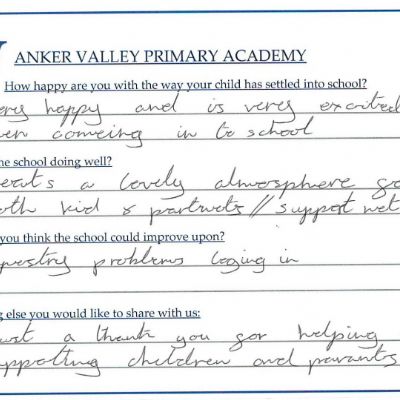 ANKER VALLEY PRIMARY ACADEMY
How happy are you with the way your child has settled into school?
ery happy and is very excited
en comeing in to school
he school doing well?
eats a lovely atmosphere
oth kid & /// support
you think the school could improve upon?
pestry problems loging in
g else you would like to share with us:
ust a thank you for helping
upporting children and parants